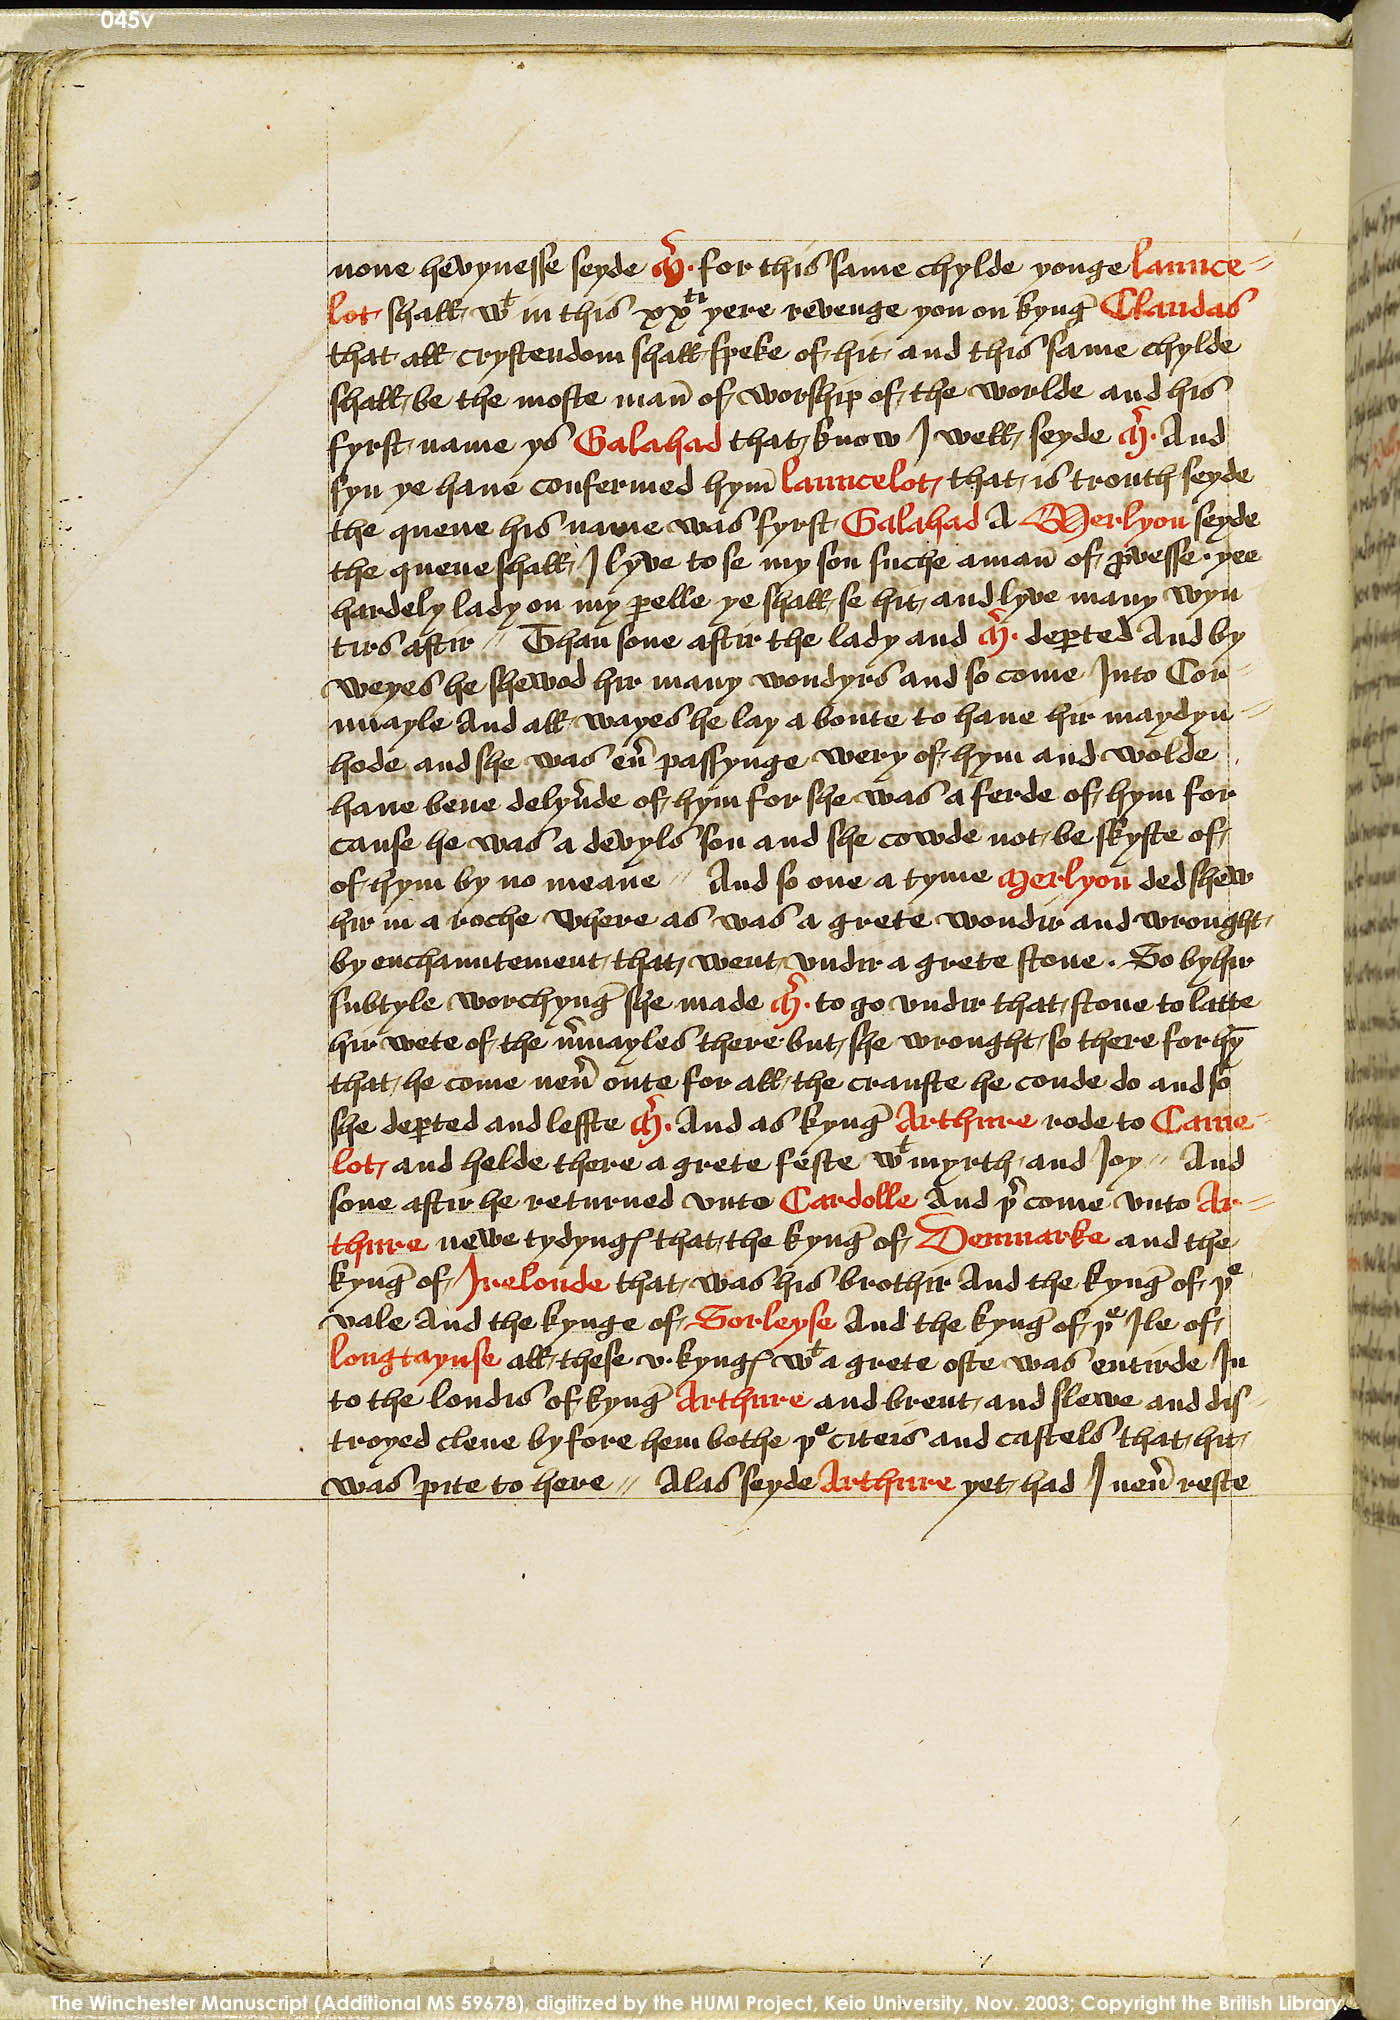 045v
none hevynesse seyde M̃. for this same chylde yonge launce=
lot shall wᵗ in this xxᵗⁱ yere revenge you on kynḡ Claudas
that all crystendom shall speke of hit and this same chylde
shall be the moste man̄ of worship of the worlde and his
fyrst name ys Galahad that know I well seyde M̃. And
syn ye haue confermed hym̄ launcelot that is trouth seyde
the quene his name was fyrst Galahad A Merlyon seyde
the quene shall I lyve to se my son suche a man̄ of ꝓvesse. yee
hardely lady on my ꝑelle ye shall se hit and lyve many wyn
tirs aftir // Than sone aftir the lady and M̃. deꝑted And by
weyes he shewod hir many wondyrs and so come Into Cor=
nuayle And all wayes he lay a boute to haue hir maydyn=
hode and she was eũ passynge wery of hym and wolde
haue bene delyũde of hym for she was a ferde of hym for
cause he was a devyls son and she cowde not be skyfte of
of hym by no meane // And so one a tyme Merlyon ded shew
hir in a roche where as was a grete wondir and wrought
by enchauntement that went vndir a grete stone. So by hir
subtyle worchynḡ she made M̃. to go vndir that stone to latte
hir wete of the m̃vayles there but she wrought so there for hȳ
that he come neũ oute for all the craufte he coude do and so
she deꝑted and leffte M̃. And as kynḡ Arthure rode to Came=
lot and helde there a grete feste wᵗ myrth and Ioy // And
sone aftir he returned vnto Cardolle And þʳ come vnto Ar=
thure newe tydyngꝭ that the kynḡ of Denmarke and the
kynḡ of Irelonde that was his brothir And the kynḡ of þᵉ
vale And the kynge of Sorleyse And the kynḡ of þᵉ Ile of
longtaynse all these v. kyngꝭ wᵗ a grete oste was entirde In
to the londis of kynḡ Arthure and brent and slewe and dis=
troyed clene byfore hem bothe þᵉ citeis and castels that hit
was pite to here // Alas seyde Arthure yet had I neũ reste
The Winchester Manuscript (Additional MS 59678), digitized by the HUMI Project, Keio University, Nov. 2003; Copyright the British Library.